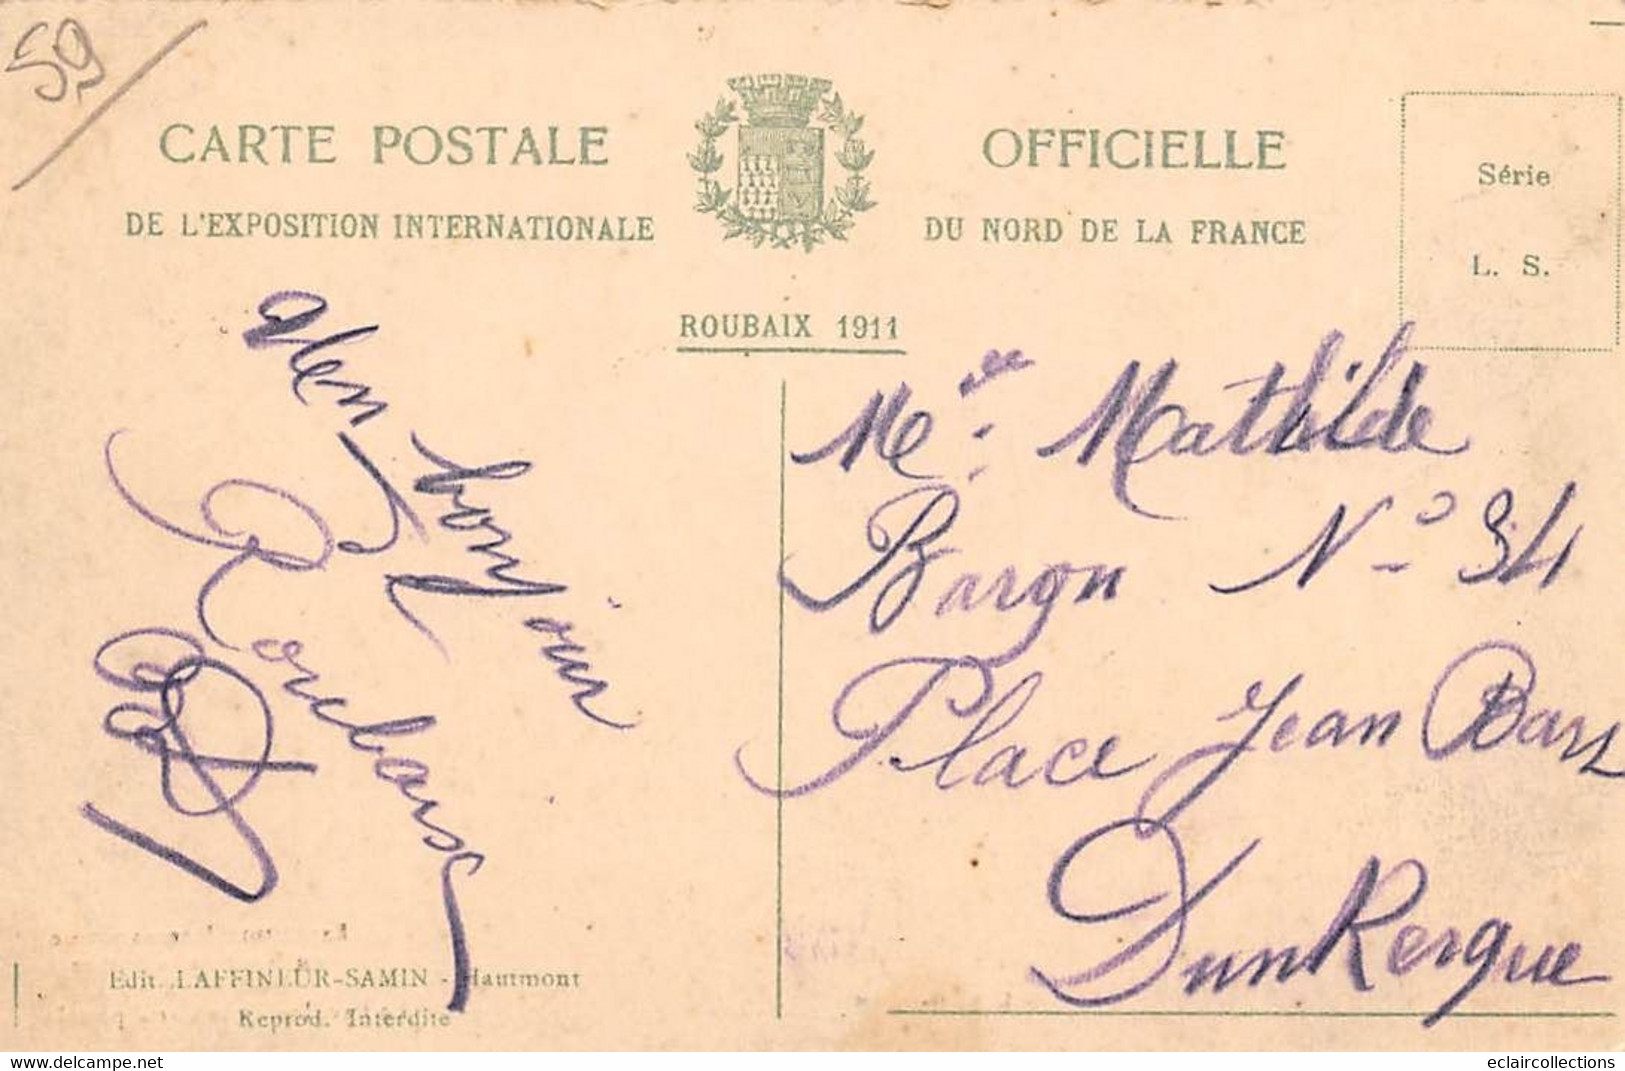 59
CARTE POSTALE OFFICIELLE
DE L'EXPOSITION INTERNATIONALE DU NORD DE LA FRANCE
ROUBAIX 1911
Série
L. S.
bonjour
Mlle Mathilde
Baron N° 34
Place Jean Bart
Dunkerque
Edit. LAFFINEUR-SAMIN - Hautmont
Reprod. Interdite
eclaircollections
www.delcampe.net